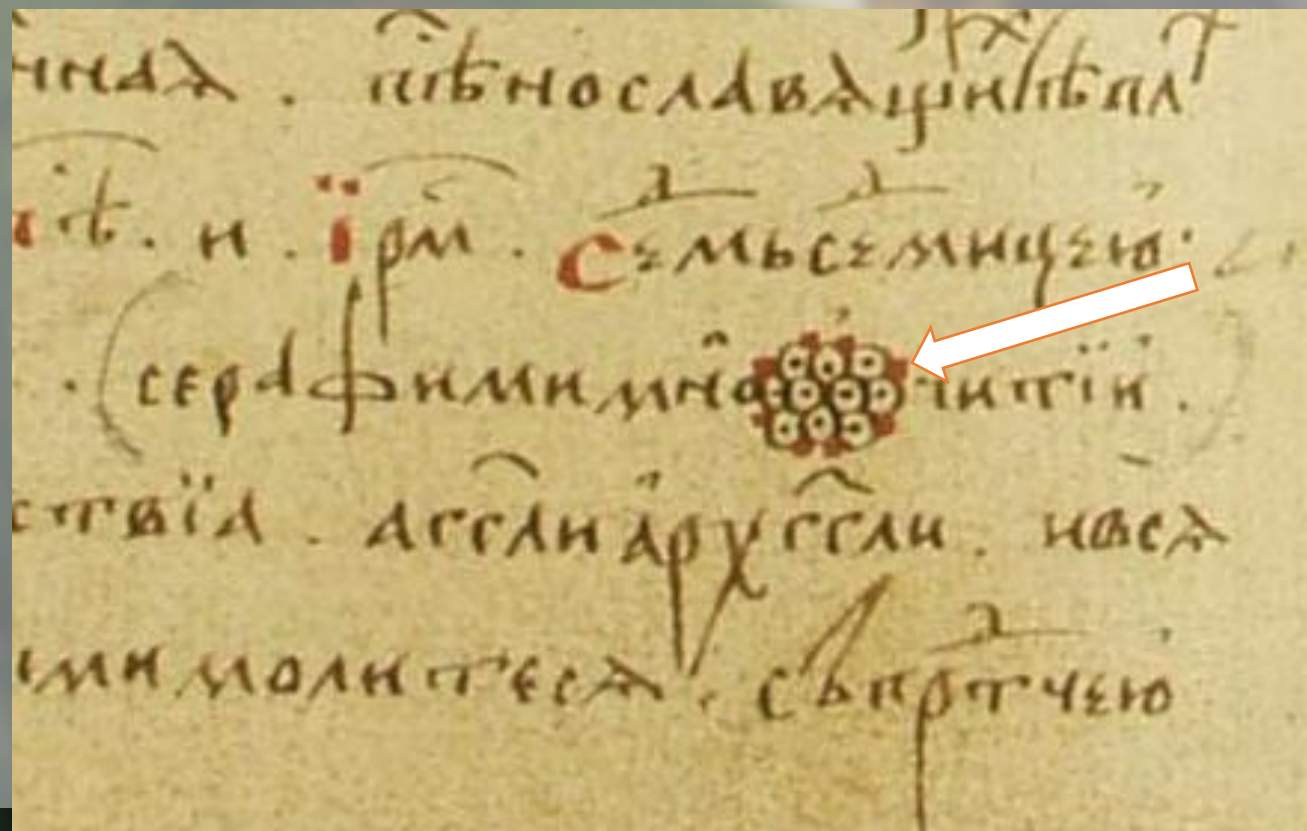 ннаѧ . пѣнославѧщи пѣпл
тѣ . и . їрм . Семьсемицею
. серафими мноꙮчитїи .
ствїа . аггли архггли . ивсѧ
ими молитесѧ . съпртчею